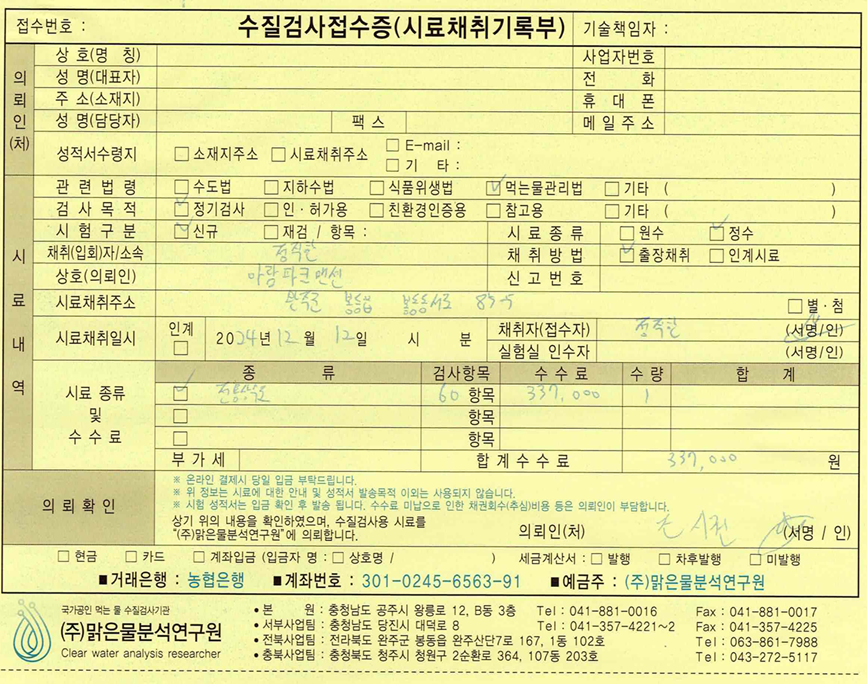 접수번호 : 수질검사접수증(시료채취기록부) 기술책임자 :
의뢰인(처) 상 호(명 칭) 사업자번호
성 명(대표자) 전 화
주 소(소재지) 휴 대 폰
성 명(담당자) 팩 스 메 일 주 소
성적서수령지 □ 소재지주소 □ 시료채취주소 □ E-mail :
□ 기 타 :
시료내역 관 련 법 령 □ 수도법 □ 지하수법 □ 식품위생법 ☑ 먹는물관리법 □ 기타 ( )
검 사 목 적 ☑ 정기검사 □ 인·허가용 □ 친환경인증용 □ 참고용 □ 기타 ( )
시 험 구 분 ☑ 신규 □ 재검 / 항목 : 시 료 종 류 □ 원수 ☑ 정수
채취(입회)자/소속 채 취 방 법 ☑ 출장채취 □ 인계시료
상호(의뢰인) 아람파크맨션 신 고 번 호
시료채취주소 완주군 봉동읍 봉동동서로 89-5 □ 별·첨
시료채취일시 인계 □ 2024년 12월 12일 시 분 채취자(접수자) (서명/인)
실험실 인수자 (서명/인)
시료 종류 및 수 수 료 종 류 검사항목 수 수 료 수 량 합 계
☑ 60 항목 337,000 1
□ 항목
□ 항목
부 가 세 합 계 수 수 료 337,000 원
의 뢰 확 인 ※ 온라인 결제시 당일 입금 부탁드립니다.
※ 위 정보는 시료에 대한 안내 및 성적서 발송목적 이외는 사용되지 않습니다.
※ 시험 성적서는 입금 확인 후 발송 됩니다. 수수료 미납으로 인한 채권회수(추심)비용 등은 의뢰인이 부담합니다.
상기 위의 내용을 확인하였으며, 수질검사용 시료를
"(주)맑은물분석연구원"에 의뢰합니다. 의뢰인(처) (서명 / 인)
□ 현금 □ 카드 □ 계좌입금 (입금자 명 : □ 상호명 / ) 세금계산서 : □ 발행 □ 차후발행 □ 미발행
■ 거래은행 : 농협은행 ■ 계좌번호 : 301-0245-6563-91 ■ 예금주 : (주)맑은물분석연구원
국가공인 먹는 물 수질검사기관
(주)맑은물분석연구원
Clear water analysis researcher
• 본 원 : 충청남도 공주시 왕릉로 12, B동 3층 Tel : 041-881-0016 Fax : 041-881-0017
• 서부사업팀 : 충청남도 당진시 대덕로 8 Tel : 041-357-4221~2 Fax : 041-357-4225
• 전북사업팀 : 전라북도 완주군 봉동읍 완주산단7로 167, 1동 102호 Tel : 063-861-7988
• 충북사업팀 : 충청북도 청주시 청원구 2순환로 364, 107동 203호 Tel : 043-272-5117